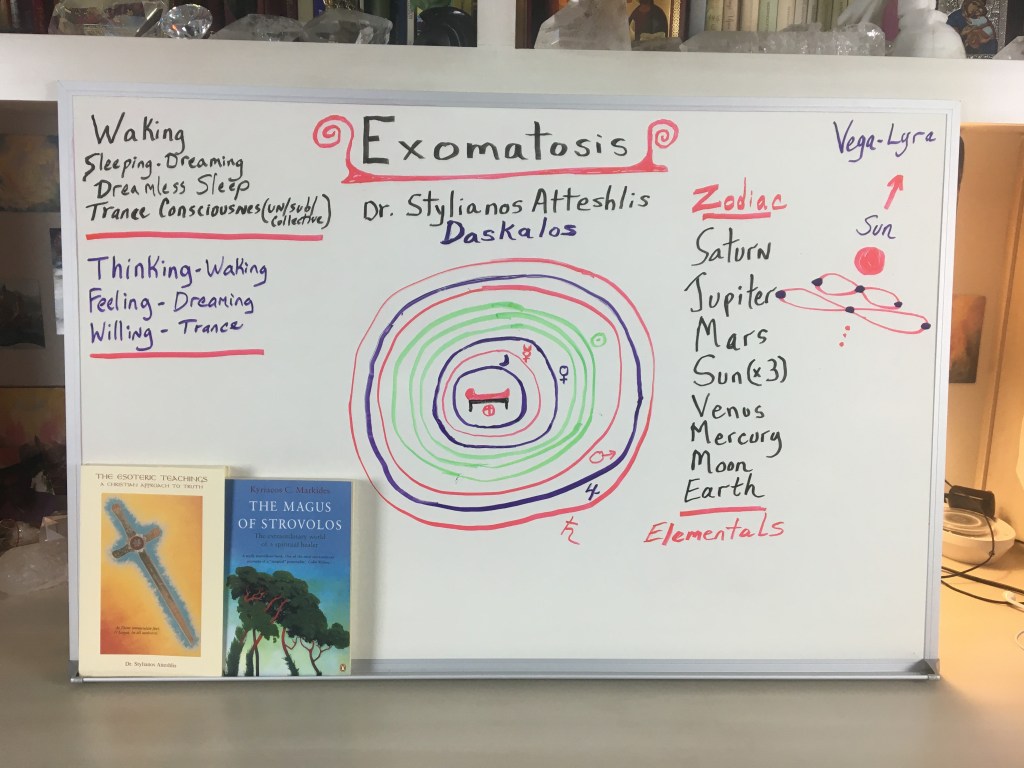 Waking
Sleeping-Dreaming
Dreamless Sleep
Trance Consciousnes(un/sub/
Collective)
Thinking-Waking
Feeling - Dreaming
Willing - Trance
Exomatosis
Dr. Stylianos Atteshlis
Daskalos
Zodiac
Saturn
Jupiter
Mars
Sun(x3)
Venus
Mercury
Moon
Earth
Elementals
Vega-Lyra
Sun
THE ESOTERIC TEACHINGS
A CHRISTIAN APPROACH TO TRUTH
Dr. Stylianos Atteshlis
Kyriacos C. Markides
THE MAGUS
OF STROVOLOS
The extraordinary world
of a spiritual healer